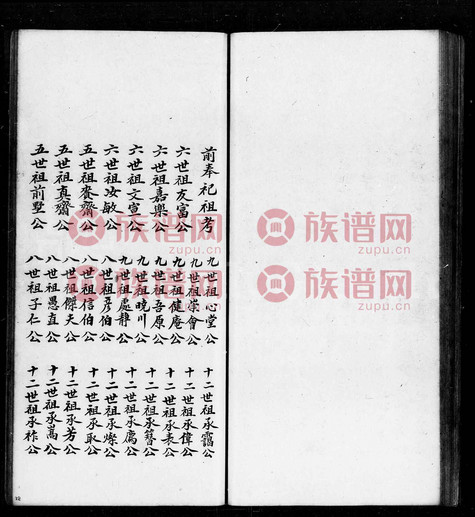 前奉祀祖考
六世祖友富公
六世祖嘉樂公
六世祖文宣公
六世祖汝敏公
五世祖賚齋公
五世祖真齋公
五世祖前墅公
九世祖心堂公
九世祖崇會公
九世祖健庵公
九世祖吾原公
九世祖曉川公
九世祖處靜公
八世祖彥伯公
八世祖信伯公
八世祖傑夫公
八世祖愚直公
八世祖子仁公
十二世祖承靄公
十二世祖承偉公
十二世祖承表公
十二世祖承簪公
十二世祖承廌公
十二世祖承爕公
十二世祖承取公
十二世祖承芳公
十二世祖承嵩公
十二世祖承祚公
族谱网
zupu.cn
族谱网
zupu.cn
族谱网
zupu.cn
族谱网
zupu.cn
族谱网
zupu.cn
族谱网
zupu.cn